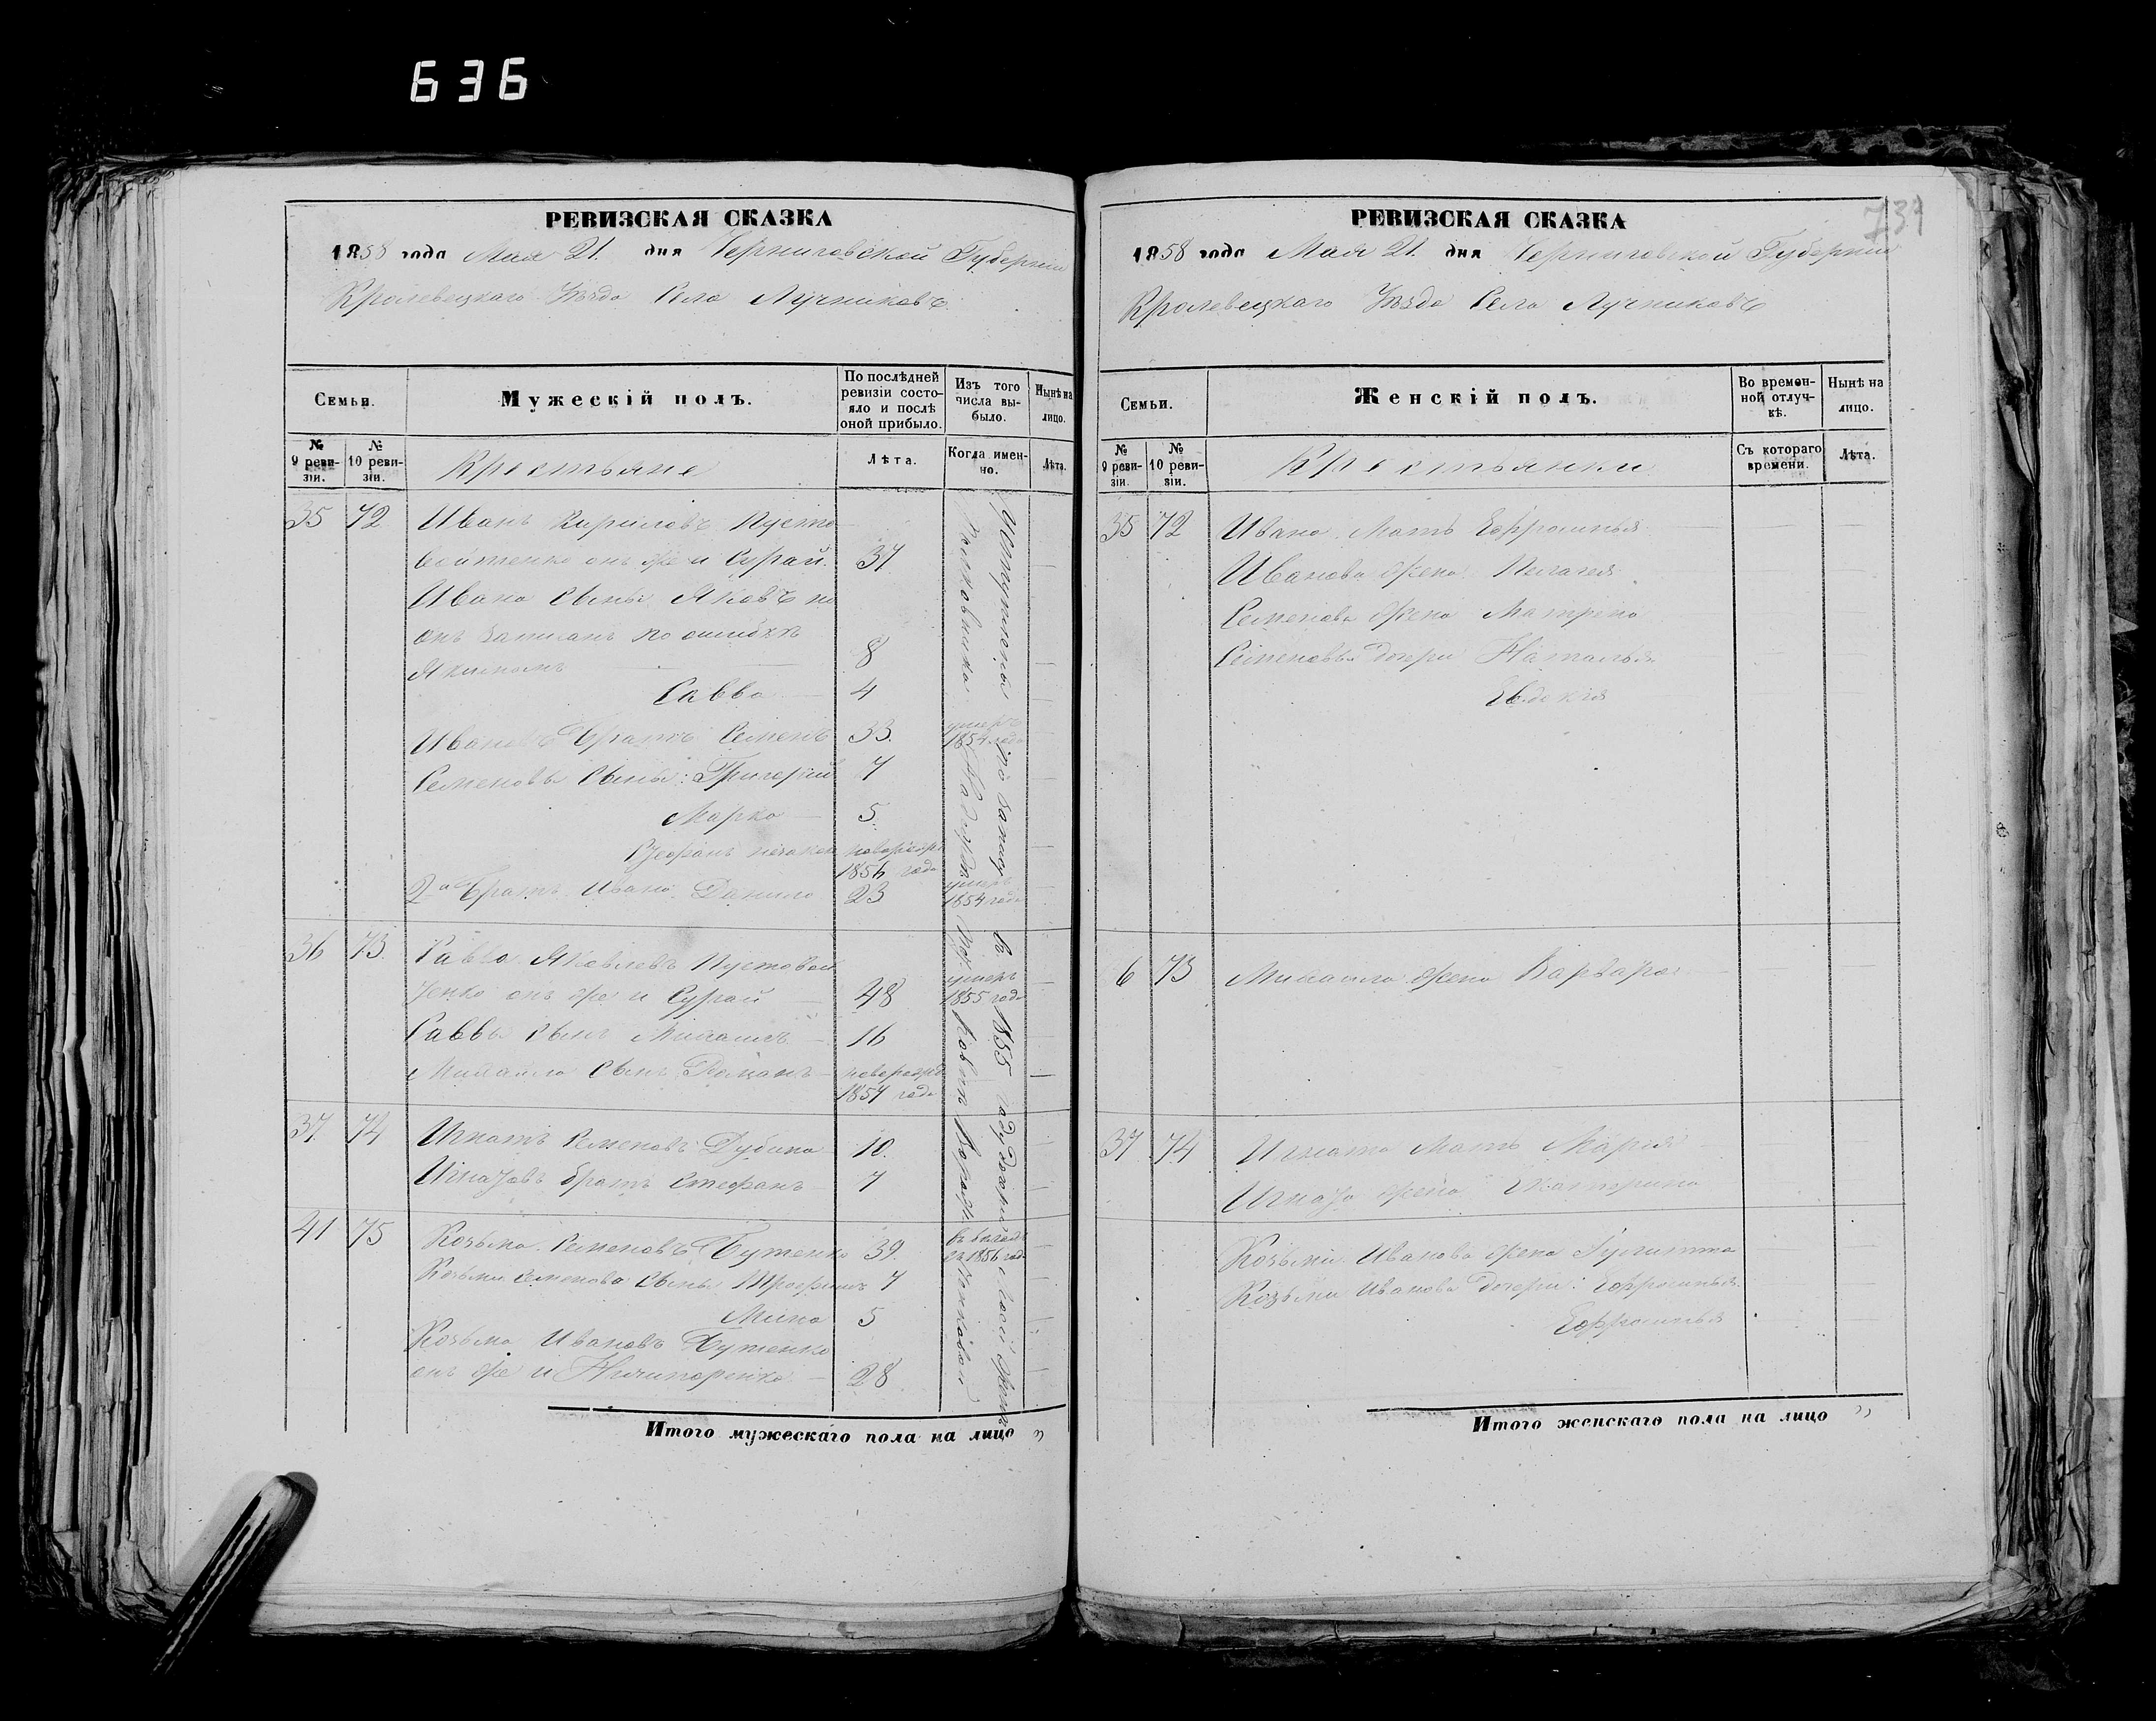 636
РЕВИЗСКАЯ СКАЗКА
1858 года Мая 21. дня Черниговской Губерніи
Кролевецкаго Уѣзда Села Лучниковъ
Семьи.
Мужескій полъ.
По послѣдней ревизіи состояло и послѣ оной прибыло.
Изъ того числа выбыло.
Нынѣ на лицо.
№ 9 ревизіи.
№ 10 ревизіи.
Крестьяне
Лѣта.
Когда именно.
Лѣта.
35 72 Иванъ Кириловъ Пусто
войтенко онъ же и Сурай. 37
Ивана Сыны Яковъ но
онъ записанъ по ошибкѣ
Якимомъ 8
Савва 4
Ивановъ братъ Семенъ 33. умеръ 1854 года
Семеновы Сыны: Григорій 7
Марко 5.
новорожд 1856 года
2й братъ Ивана Данило 23 умеръ 1854 года
36 73. Савва Яковлевъ Пустовой
тенко онъ же и Сурай 48 умеръ 1855 года
Саввы Сынъ Михаилъ 16
Михаила Сынъ Романъ новорожд 1857 года
37 74 Игнатъ Семеновъ Дубина 10.
Игнатовъ братъ Стефанъ 7
41 75 Козьма Семеновъ Бутенко 39. 1856 год
Козьми Семенова Сыны Трофимъ 7
Мина 5
Козьма Ивановъ Бутенко
онъ же и Ничипоренко 28
1855 году
Итого мужескаго пола на лицо "
737
РЕВИЗСКАЯ СКАЗКА
1858 года Мая 21. дня Черниговской Губерніи
Кролевецкаго Уѣзда Села Лучниковъ
Семьи.
Женскій полъ.
Во временной отлучкѣ.
Нынѣ на лицо.
№ 9 ревизіи.
№ 10 ревизіи.
Крестьянки
Съ котораго времени.
Лѣта.
35 72 Ивана Мать Ефросинья
Иванова жена Пелагея
Семенова жена Матрена
Семеновы дочри Наталья
Евдокія
6 73 Михаила жена Варвара
37 74 Игната Мать Марія
Игната жена Екатерина
Козьми Иванова жена
Козьми Иванова дочери: Ефросинья
Ефросинья
Итого женскаго пола на лицо "